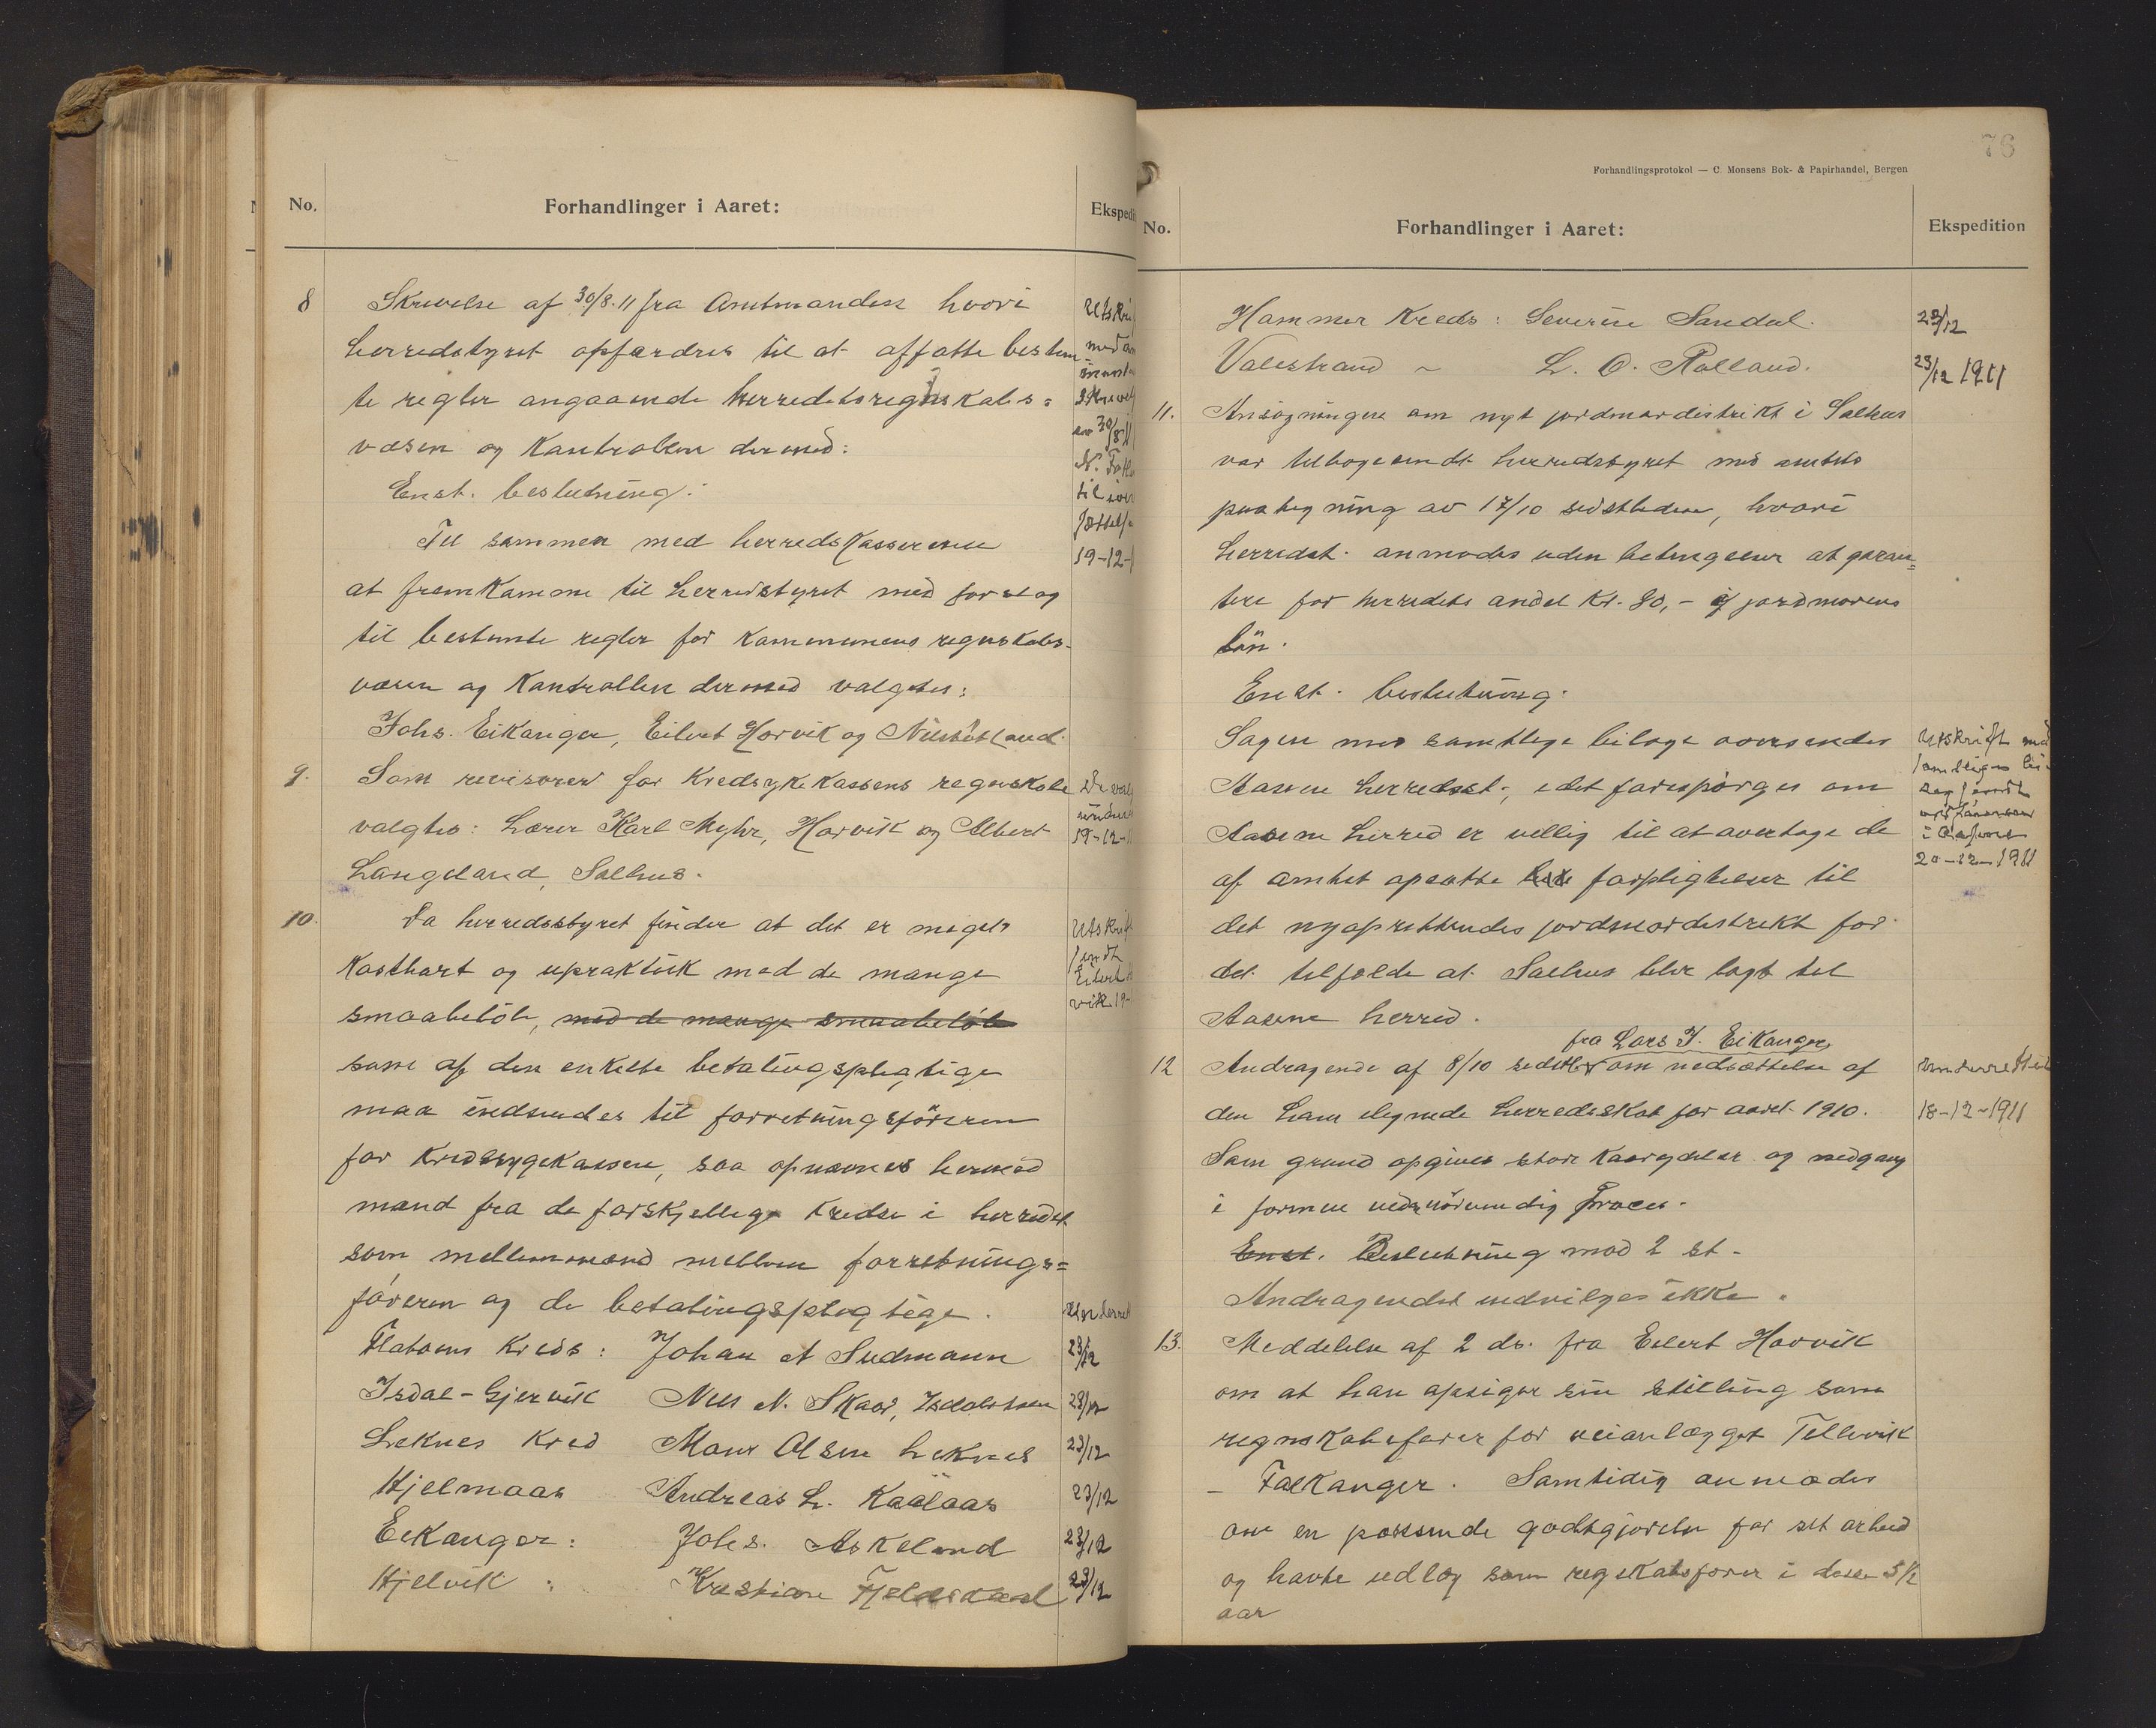 No.
Forhandlinger i Aaret:
Ekspedit
8
Skrivelse af 30/8.11 fra Amtmanden hvori
herredstyret opfordres til at affatte bestem=
te regler angaaende herredetsregnskabs=
væsen og Kontrollen dermed:
Enst. beslutning:
Til sammen med herredskassereren
at fremkomme til herredstyret med forslag
til bestemte regler for kommunens regnskabs-
væsen og Kontrollen dermed valgtes:
Johs. Eikanger, Eilert Horvik og
9.
Som revisorer for Kredsykekassens regnskab
valgtes: Lærer Karl Myhr, Horvik og Albert
Langeland, Salhus.
19-12-
10.
Da herredsstyret finder at det er meget
Kostbart og upraktisk med de mange
smaabeløb, med de mange smaabeløb
som af den enkelte betalingspligtige
maa indsendes til forretningsföreren
for Kredssygekassen, saa opnævnes hermed
mænd fra de forskjellige kredse i herredet
som mellemmænd mellem forretnings=
föreren og de betalingspligtige.
Flatøens Kreds: Johan A Sudmann 23/12
Isdal-Gjervik Nils N. Skaar, Isdalstøen 23/12
Leknes Kred Mons Olsen Leknes 23/12
Hjelmaas Andreas L. Kaalaas 23/12
Eikanger: Johs. Askeland 23/12
Hjelvik: Kristian Fjeldskaal 23/12
76
Forhandlingsprotokol — C. Monsens Bok- & Papirhandel, Bergen
No.
Forhandlinger i Aaret:
Ekspedition
Hammer Kreds: Severin Sandal. 23/12
Valestrand ~ L. O. Rolland. 23/12 1911
11.
Ansøgningen om nyt jordmordistrikt i Salhus
var tilbagesendt herredstyret med amtets
paategning av 17/10 sidstleden, hvori
herredst. anmodes uden betingelser at garan=
tere for herredets andel Kr. 80,- i jordmorens
lön.
Enst. beslutning.
Sagen med samtlige bilage oversendes
Aasene herredsst., idet forespørges om
Aasene herred er villig til at overtage de
af amtet opsatte forpligtelser til
det nyoprettendes jordmordistrikt for
det tilfælde at Salhus blir lagt til
Aasene herred.
Utskrift med
samtliges bi-
lag sendt
i Aasene
20-12-1911
fra Lars J. Eikanger,
12
Andragende af 8/10 sidstl. om nedsættelse af
den ham ilignede herredsskat for aaret 1910.
Som grund opgives store Kaarydelser og nedgang
i formue nedrørvendig Proces.
Enst. Beslutning mod 2 st-
Andragendet indvilges ikke.
Underrettet
18-12-1911
13.
Meddelelse af 2 ds. fra Eilert Horvik
om at han opsiger sin stilling som
regnskabsfører for veianlægget Tellevik
- Falkanger. Samtidig anmodes
om en passende godtgjørelse for sit arbeid
og havte udlæg som regskabsfører i disse 5½
aar